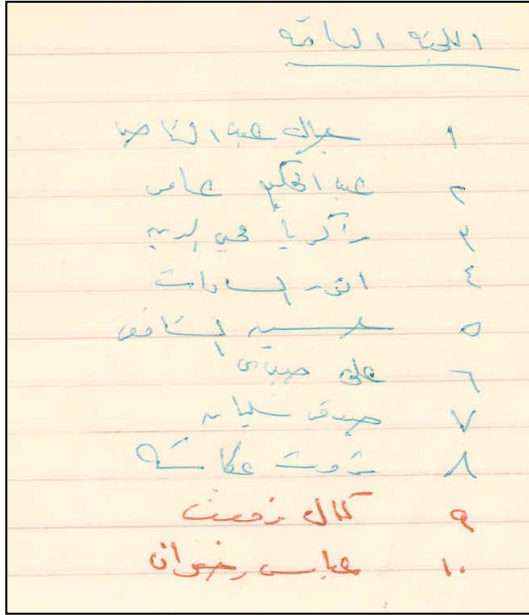 اللجنة العامة
١ جمال عبد الناصر
٢ عبد الحكيم عامر
٣ زكريا محي الدين
٤ انور السادات
٥ حسين الشافعى
٦ على صبرى
٧ صدقى سليمان
٨ ثروت عكاشه
٩ كمال رفعت
١٠ عباس رضوان